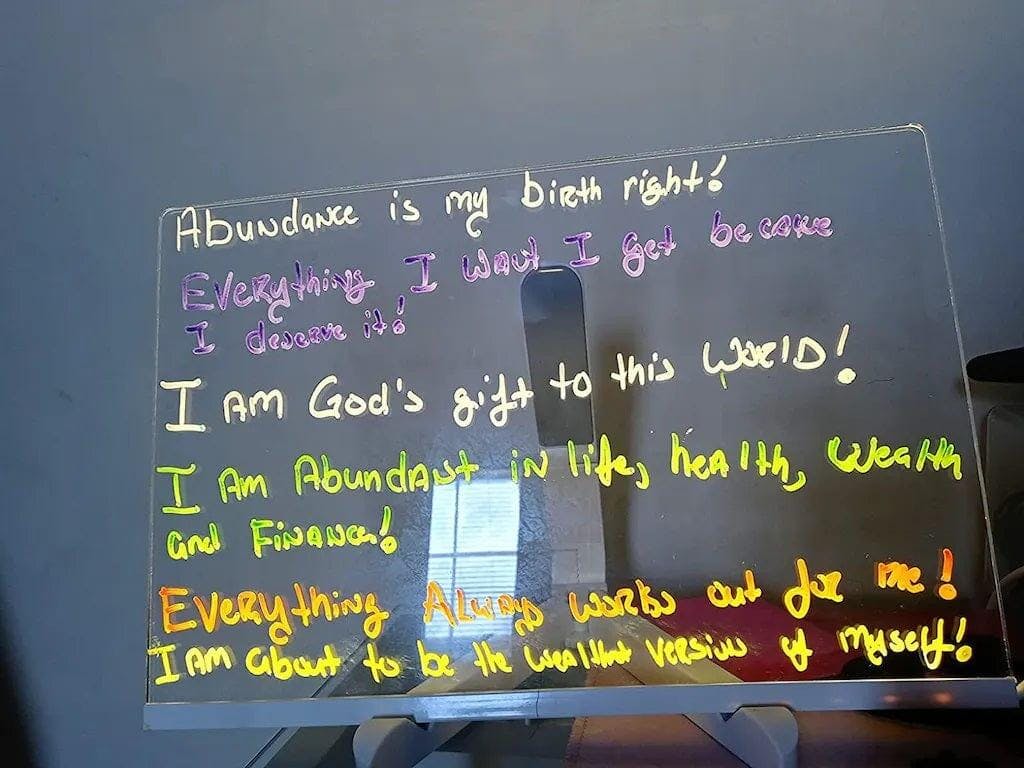 Abundance is my birth right!
Everything I want I get because
I deserve it!
I AM God's gift to this WORLD!
I Am Abundant in life, health, wealth
and Finance!
Everything Always works out for me!
I AM about to be the wealthiest version of myself!